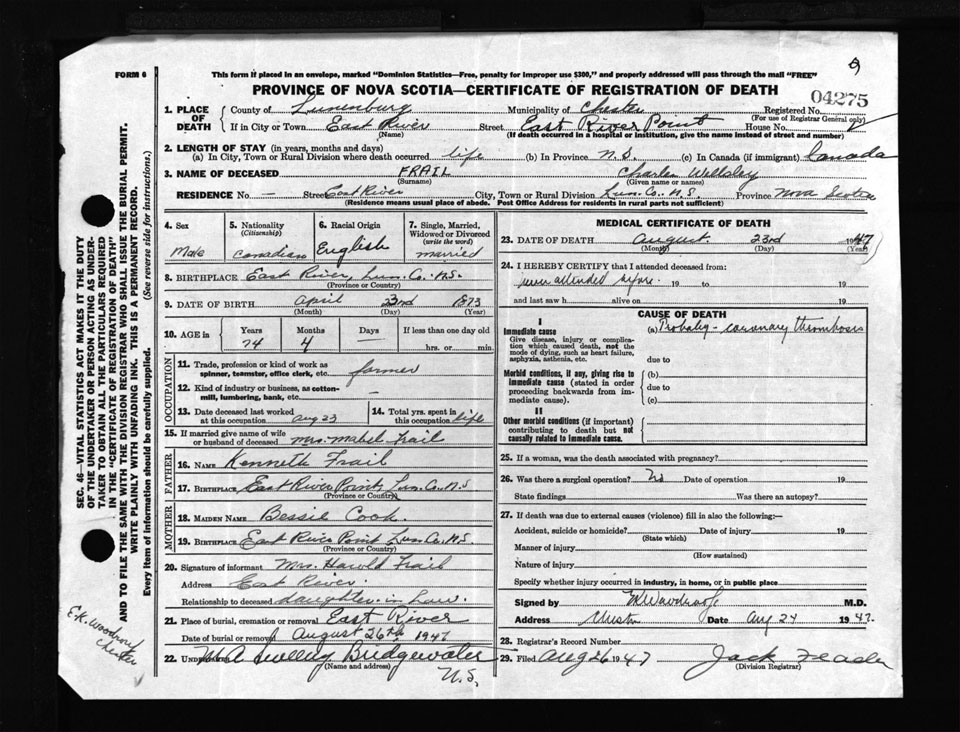 FORM 6
This form if placed in an envelope, marked "Dominion Statistics—Free, penalty for improper use $300," and properly addressed will pass through the mail "FREE"
9
PROVINCE OF NOVA SCOTIA—CERTIFICATE OF REGISTRATION OF DEATH
04275
1. PLACE OF DEATH
County of Lunenburg Municipality of Chester Registered No.
(For use of Registrar General only)
If in City or Town East River Street East River Point House No.
(Name) (If death occurred in a hospital or institution, give the name instead of street and number)
2. LENGTH OF STAY (in years, months and days)
(a) In City, Town or Rural Division where death occurred life (b) In Province N.S. (c) In Canada (if immigrant) Canada
3. NAME OF DECEASED FRAIL Charles Wellsley
(Surname) (Given name or names)
RESIDENCE No. — Street East River City, Town or Rural Division Lun. Co. N.S. Province Nova Scotia
(Residence means usual place of abode. Post Office Address for residents in rural parts not sufficient)
4. Sex
Male
5. Nationality
(Citizenship)
Canadian
6. Racial Origin
English
7. Single, Married, Widowed or Divorced
(write the word)
married
8. BIRTHPLACE East River, Lun. Co. N.S.
(Province or Country)
9. DATE OF BIRTH April 23rd 1873
(Month) (Day) (Year)
10. AGE in
Years Months Days If less than one day old
74 4 — hrs. or min.
OCCUPATION
11. Trade, profession or kind of work as
spinner, teamster, office clerk, etc. farmer
12. Kind of industry or business, as cotton-
mill, lumbering, bank, etc. —
13. Date deceased last worked
at this occupation Aug 23
14. Total yrs. spent in
this occupation life
15. If married give name of wife
or husband of deceased Mrs. Mabel Frail
FATHER
16. NAME Kenneth Frail
17. BIRTHPLACE East River Point, Lun. Co. N.S
(Province or Country)
MOTHER
18. MAIDEN NAME Bessie Cook.
19. BIRTHPLACE East River Point Lun. Co. N.S.
(Province or Country)
20. Signature of informant Mrs. Harold Frail
Address East River.
Relationship to deceased daughter in Law.
21. Place of burial, cremation or removal East River
Date of burial or removal August 26th 1947
22. UNDERTAKER M A Bridgewater
(Name and address)
N.S.
MEDICAL CERTIFICATE OF DEATH
23. DATE OF DEATH August. 23rd 1947
(Month) (Day) (Year)
24. I HEREBY CERTIFY that I attended deceased from:
never attended before. 19 to 19
and last saw h alive on 19
CAUSE OF DEATH
I
Immediate cause
Give disease, injury or complica-
tion which caused death, not the
mode of dying, such as heart failure,
asphyxia, asthenia, etc.
(a) Probably - coronary thrombosis
due to
Morbid conditions, if any, giving rise to
immediate cause (stated in order
proceeding backwards from im-
mediate cause).
(b)
due to
(c)
II
Other morbid conditions (if important)
contributing to death but not
causally related to immediate cause.
25. If a woman, was the death associated with pregnancy?
26. Was there a surgical operation? No Date of operation 19
State findings Was there an autopsy?
27. If death was due to external causes (violence) fill in also the following:—
Accident, suicide or homicide? Date of injury 19
(State which)
Manner of injury
(How sustained)
Nature of injury
Specify whether injury occurred in industry, in home, or in public place
Signed by M.D.
Address Chester Date Aug 24 1947.
28. Registrar's Record Number
29. Filed Aug 26 1947 Jack
(Division Registrar)
SEC. 46—VITAL STATISTICS ACT MAKES IT THE DUTY
OF THE UNDERTAKER OR PERSON ACTING AS UNDER-
TAKER TO OBTAIN ALL THE PARTICULARS REQUIRED
IN THE "CERTIFICATE OF REGISTRATION OF DEATH"
AND TO FILE THE SAME WITH THE DIVISION REGISTRAR WHO SHALL ISSUE THE BURIAL PERMIT.
WRITE PLAINLY WITH UNFADING INK. THIS IS A PERMANENT RECORD.
Every item of information should be carefully supplied. (See reverse side for instructions.)
E.K. Woodroof
Chester